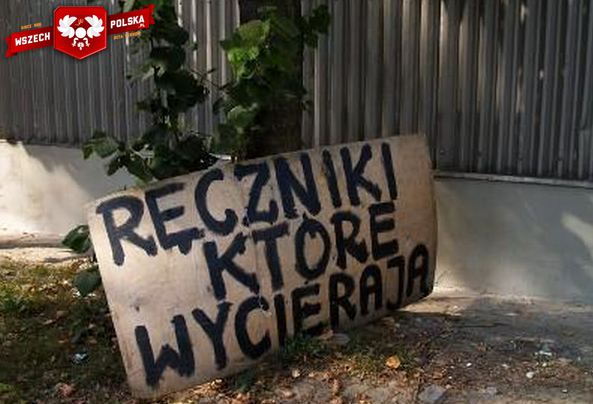 WSZECH POLSKA
RĘCZNIKI
KTÓRE
WYCIERAJĄ